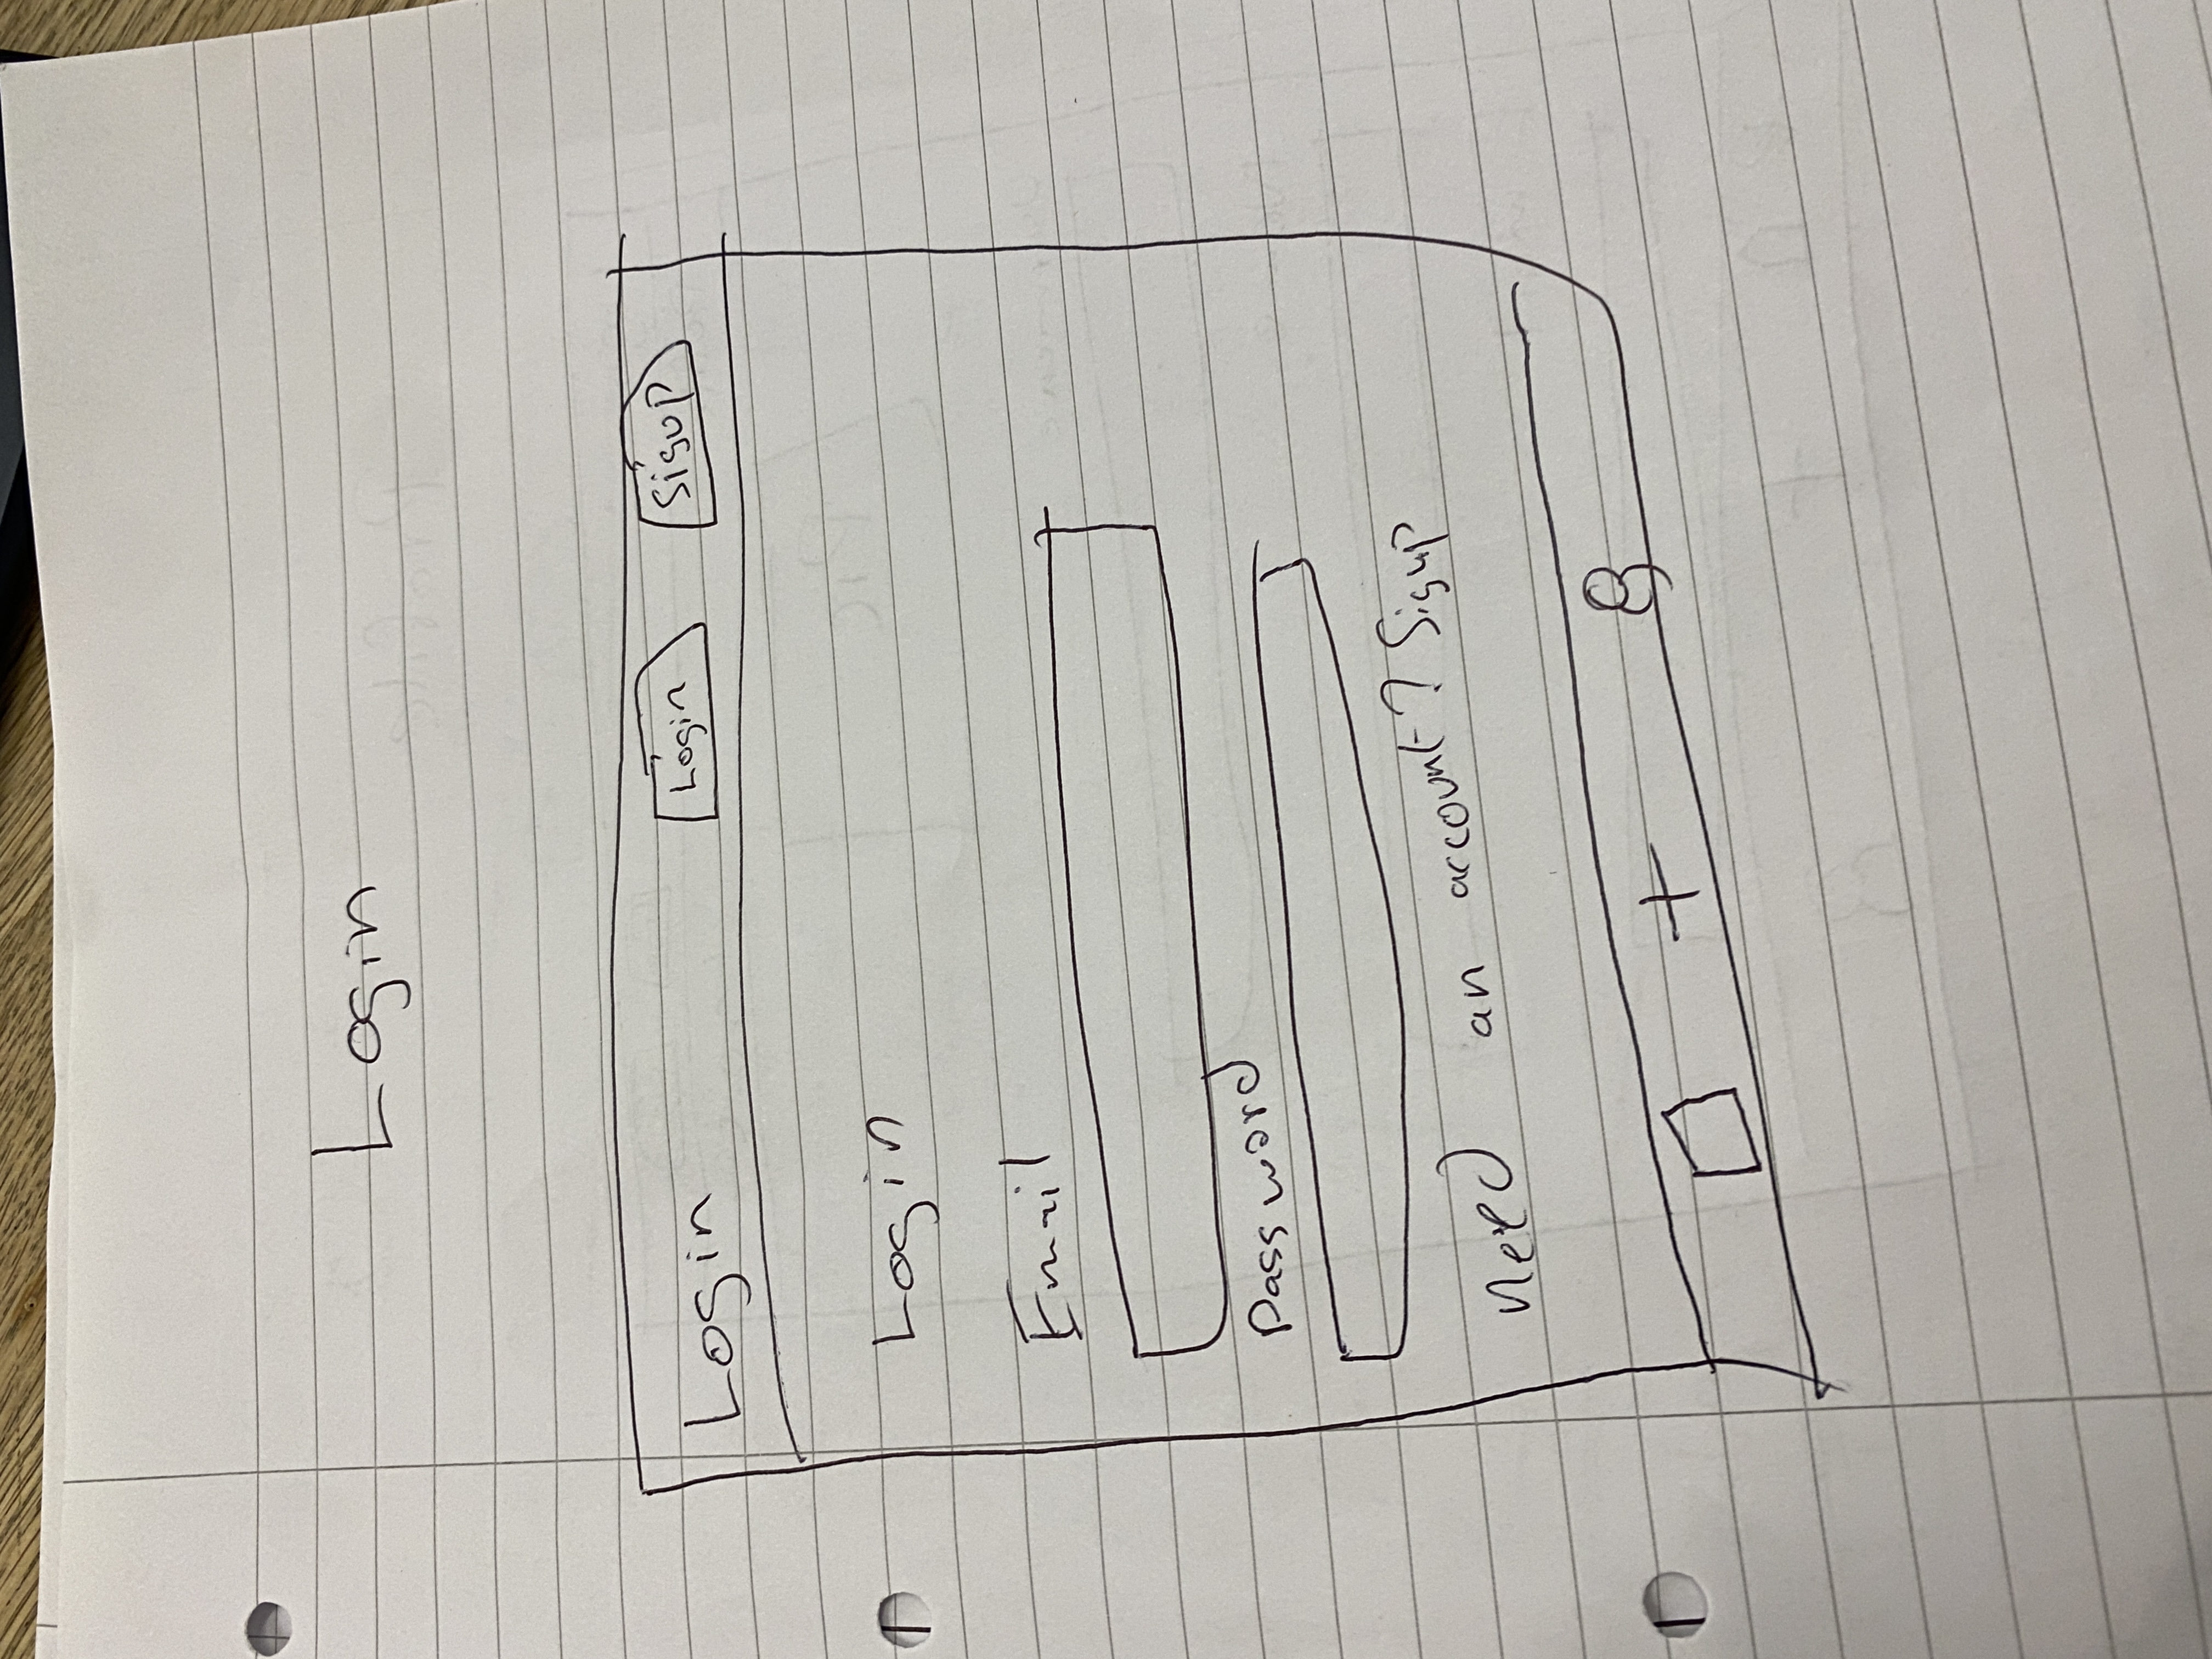 Login
Login Login Sigup
Login
Email
Password
need an account? Sigup